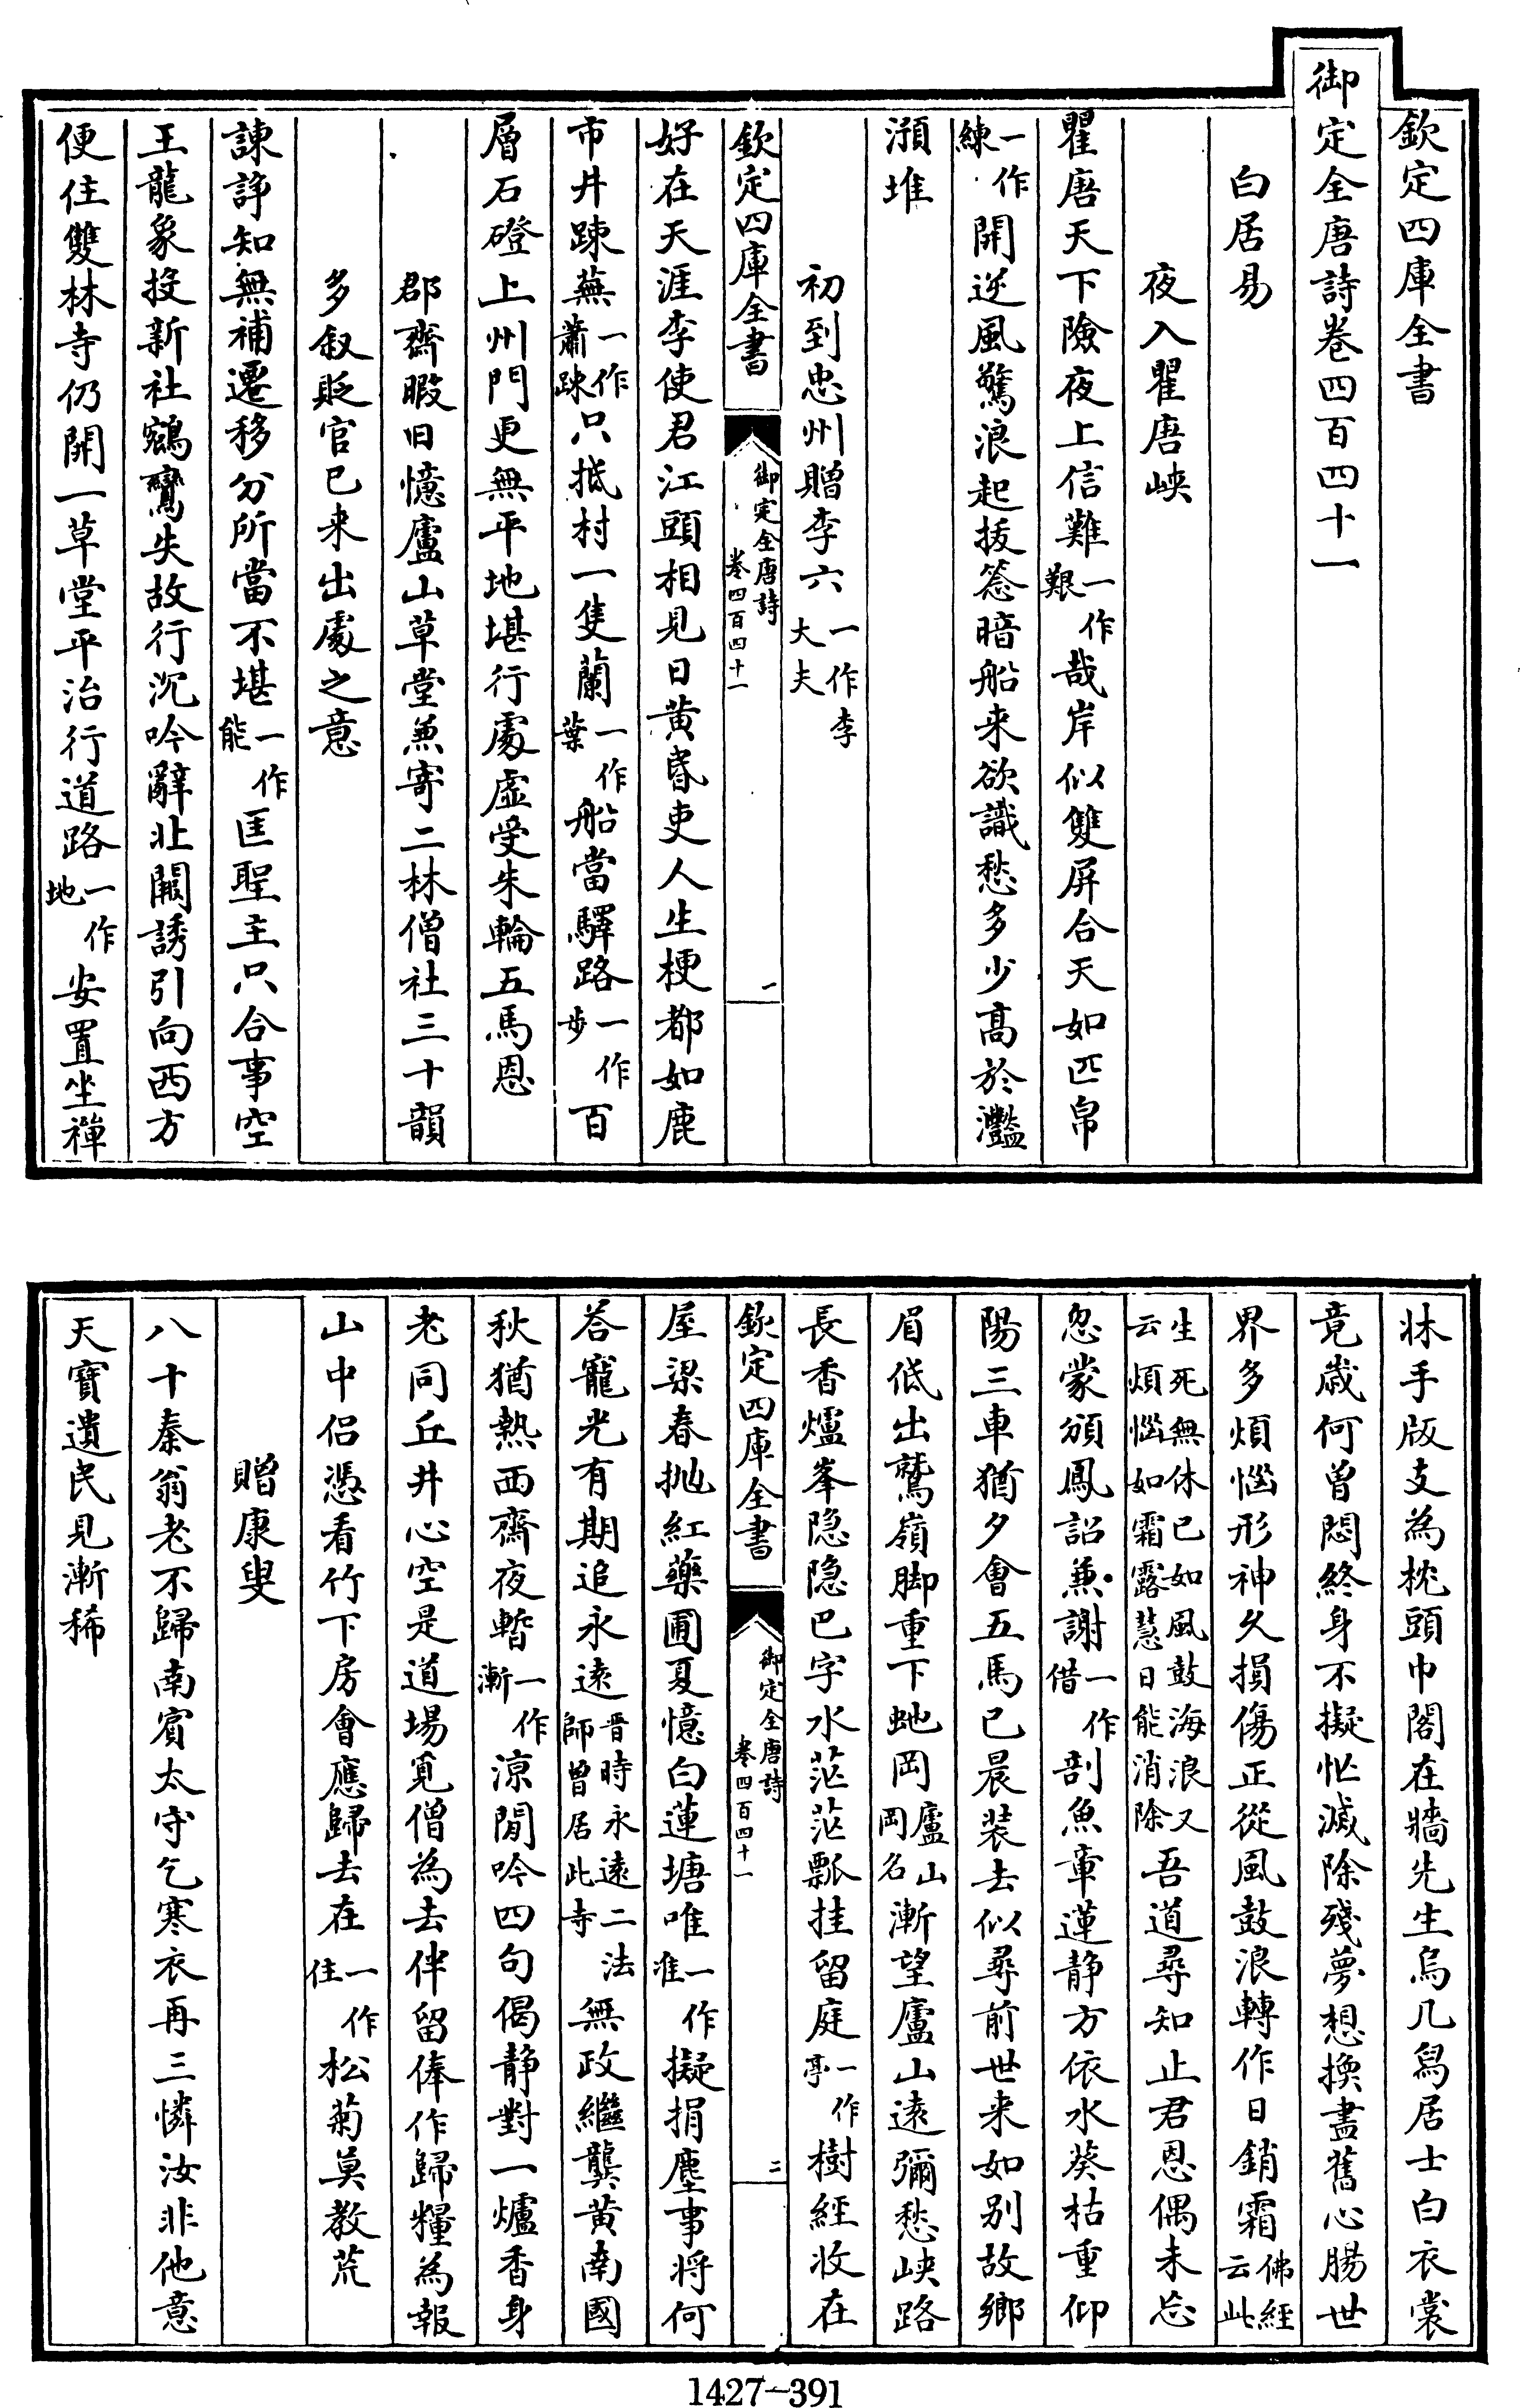 欽定四庫全書
御定全唐詩卷四百四十一
白居易
夜入瞿唐峽
瞿唐天下險夜上信難一作艱哉岸似雙屏合天如匹帛
一作練開逆風驚浪起拔䈴暗船来欲識愁多少髙於灩
澦堆
初到忠州贈李六一作李大夫
欽定四庫全書
御定全唐詩
卷四百四十一
一
好在天涯李使君江頭相見日黄昏吏人生梗都如鹿
市井踈蕪一作蕭踈只抵村一隻蘭一作葉船當驛路一作步百
層石磴上州門更無平地堪行處虚受朱輪五馬恩
郡齋暇日憶廬山草堂兼寄二林僧社三十韻
多叙貶官已来出處之意
諫諍知無補遷移分所當不堪一作能匡聖主只合事空
王龍象投新社鵷鸞失故行沉吟辭北闕誘引向西方
便住雙林寺仍開一草堂平治行道路一作地安置坐禪
牀手版支為枕頭巾閣在牆先生烏几舄居士白衣裳
竟歲何曾悶終身不擬忙滅除殘夢想換盡舊心腸世
界多煩惱形神久損傷正從風鼓浪轉作日銷霜佛經云此
生死無休已如風鼓海浪又云煩惱如霜露慧日能消除吾道尋知止君恩偶未忘
忽蒙頒鳳詔兼謝一作借剖魚章蓮静方依水葵枯重仰
陽三車猶夕會五馬已晨装去似尋前世来如别故鄉
眉低出鷲嶺脚重下虵岡廬山岡名漸望廬山遠彌愁峽路
長香爐峯隐隐巴字水茫茫瓢挂留庭一作亭樹經收在
欽定四庫全書
御定全唐詩
卷四百四十一
二
屋梁春抛紅藥圃夏憶白蓮塘唯一作准擬捐塵事将何
荅寵光有期追永遠晋時永遠二法師曽居此寺無政繼龔黄南國
秋猶熱西齋夜暫一作漸涼閒吟四句偈静對一爐香身
老同丘井心空是道場覓僧為去伴留俸作歸糧為報
山中侣憑看竹下房會應歸去在一作住松菊莫教荒
贈康叟
八十秦翁老不歸南賓太守乞寒衣再三憐汝非他意
天寳遺民見漸稀
1427-391